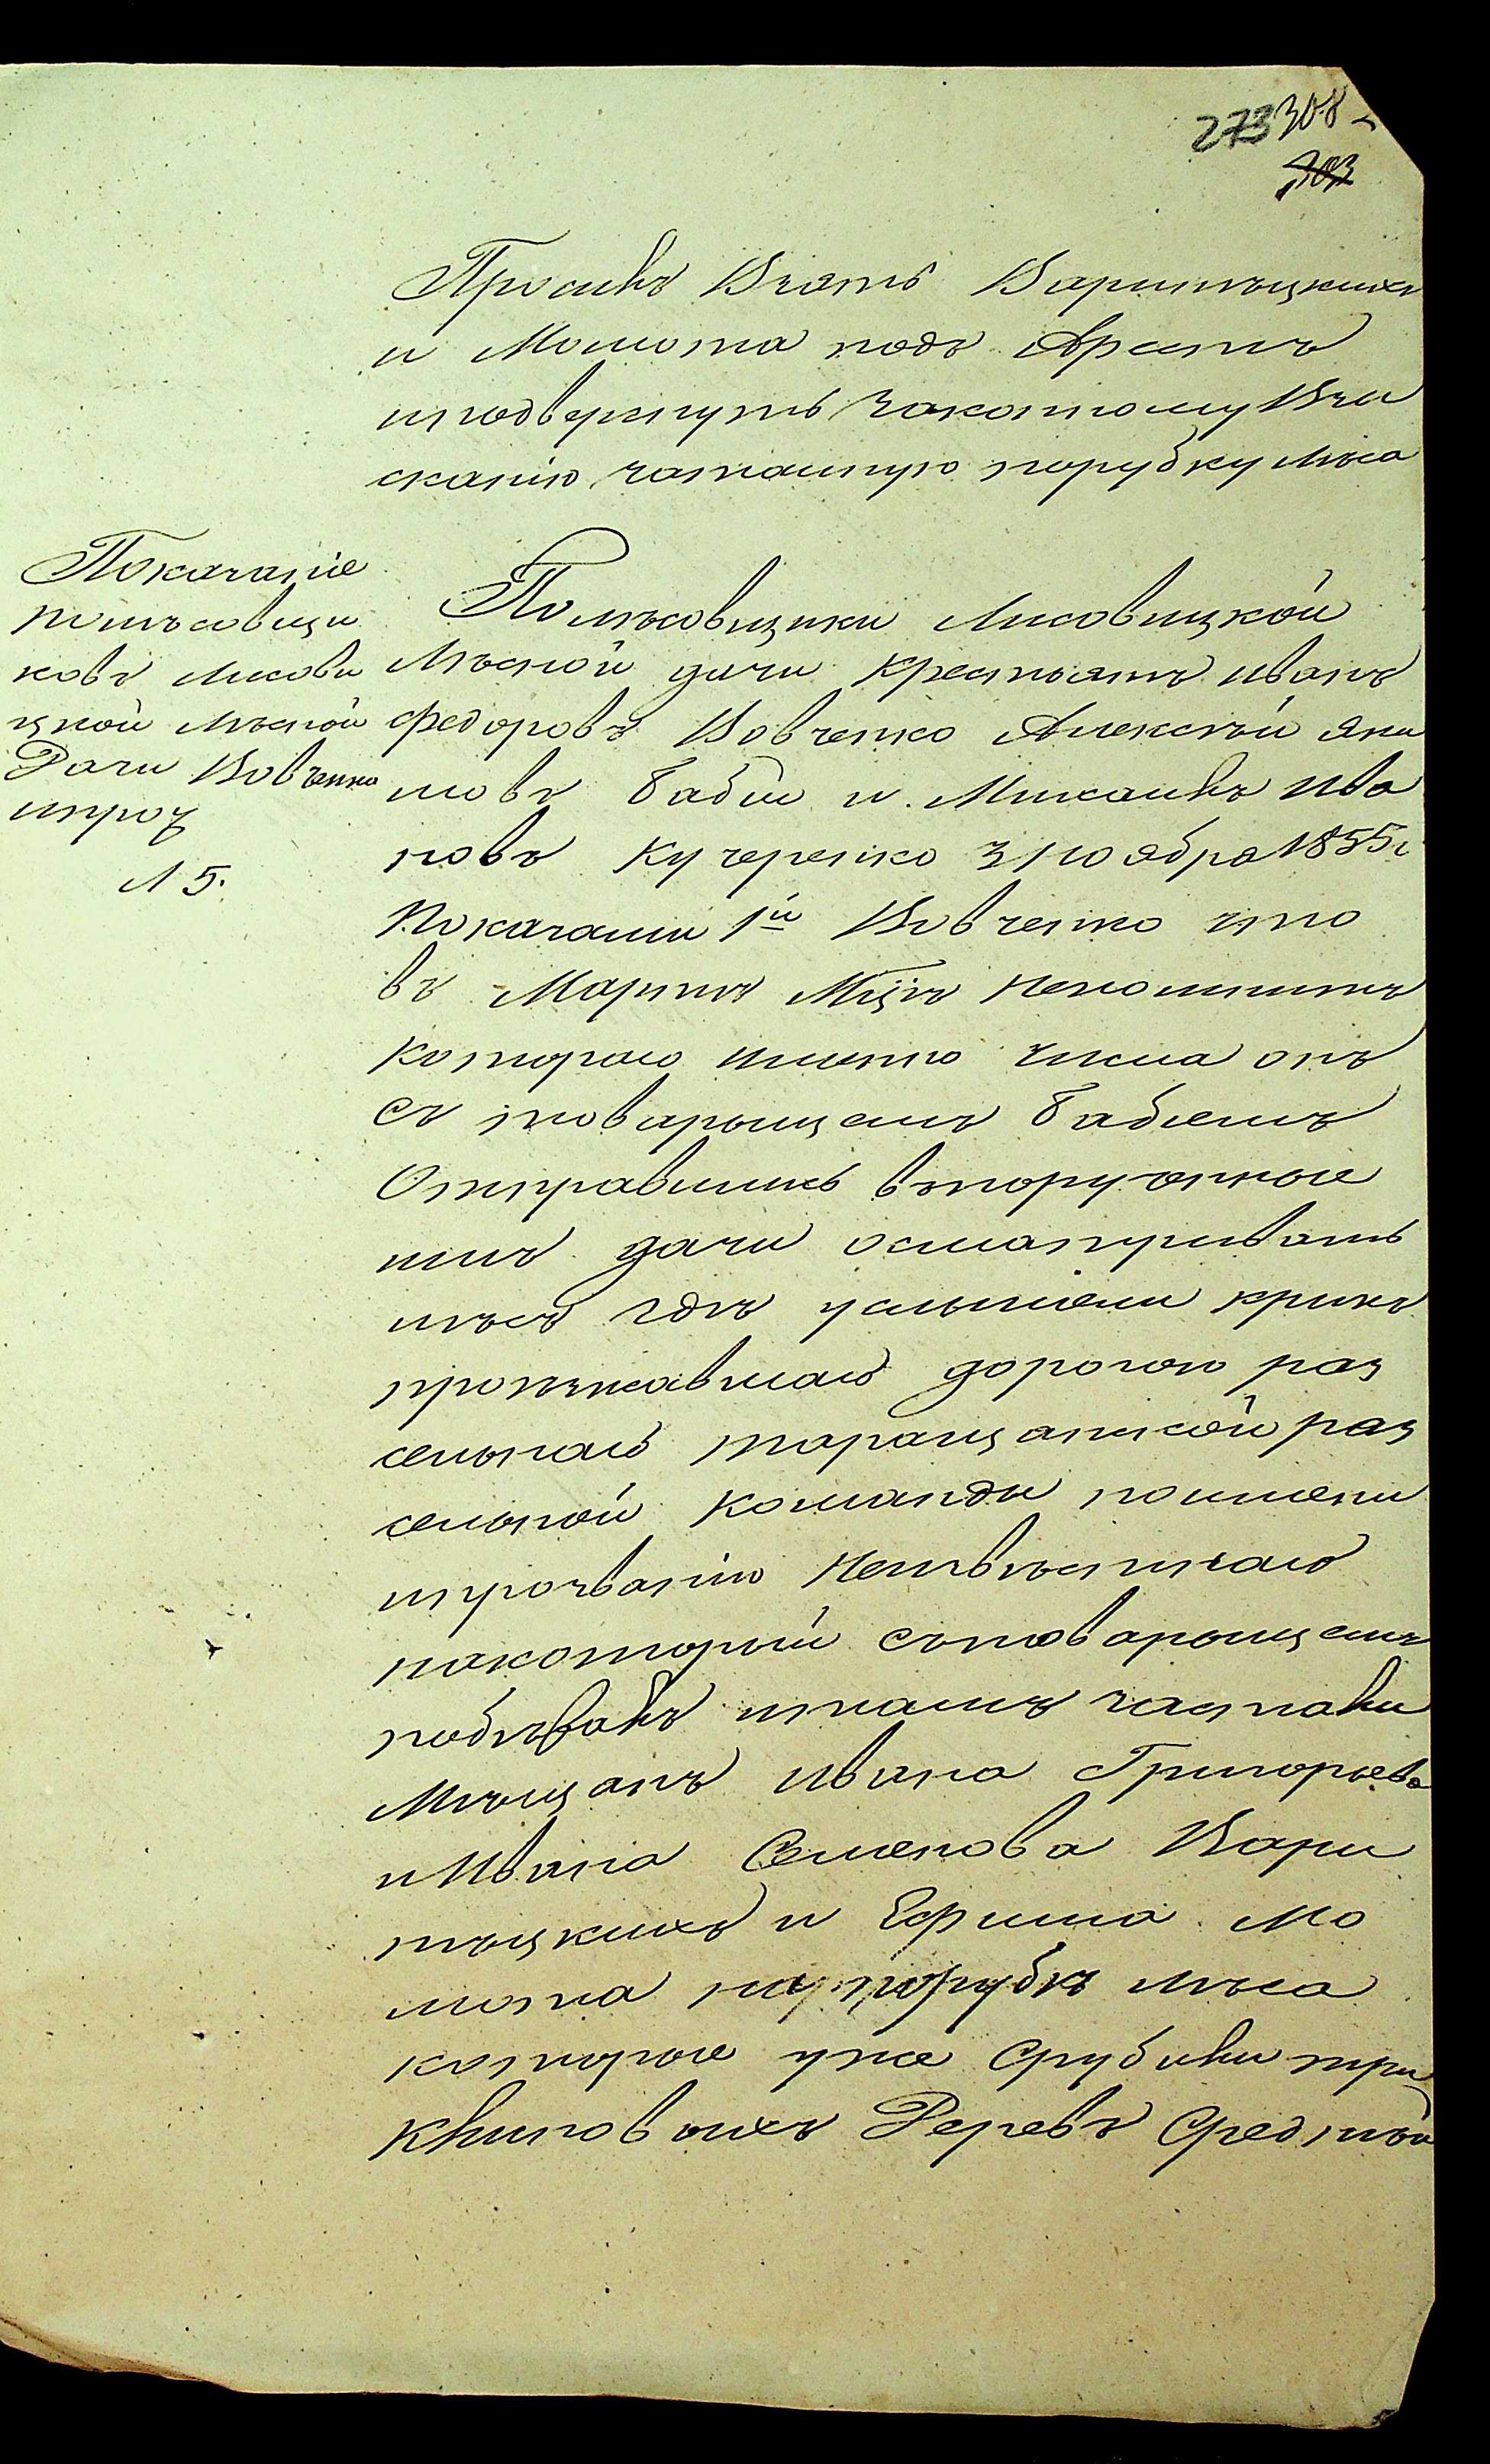 273 308
303
Просилъ Взять Варит﻿ѣцкихъ
и Молота подъ Арестъ
иподвергнуть Законному Взы
сканію, затаиную порубку лѣса
Показаніе
полѣсовщи
ковъ Лисови
цкой лѣсной
Дачи Вовченко
ипроч
л 5.
Полѣсовщики Лисовицкой
Лѣсной дачи крестьянъ иванъ
федоровъ Вовченко Алексѣй Яки
мовъ Бабій и Михаилъ ива
новъ Кучеренко 3 ноября 1855 г
Показали 1й Вовченко что
въ Мартѣ Мцѣ непомнитъ
котораго именно числа онъ
съ товарыщемъ Бабіемъ
Отправились впорученные
имъ дачи осматривать
лѣсъ гдѣ услышели крикъ
проѣзжавшаго дорогою раз
сельнаго таращанской раз
сельной Команды поимени
ипрозванію неизвѣстнаго
накоторый стоварыщемъ
побѣжавъ итамъ застали
Мѣщанъ ивана Григорьева
иивана Семенова Вари
тѣцкихъ и Ефима Мо
лота на порубкѣ лѣса
которые уже Срубили три
кленовыхъ Деревъ Средней